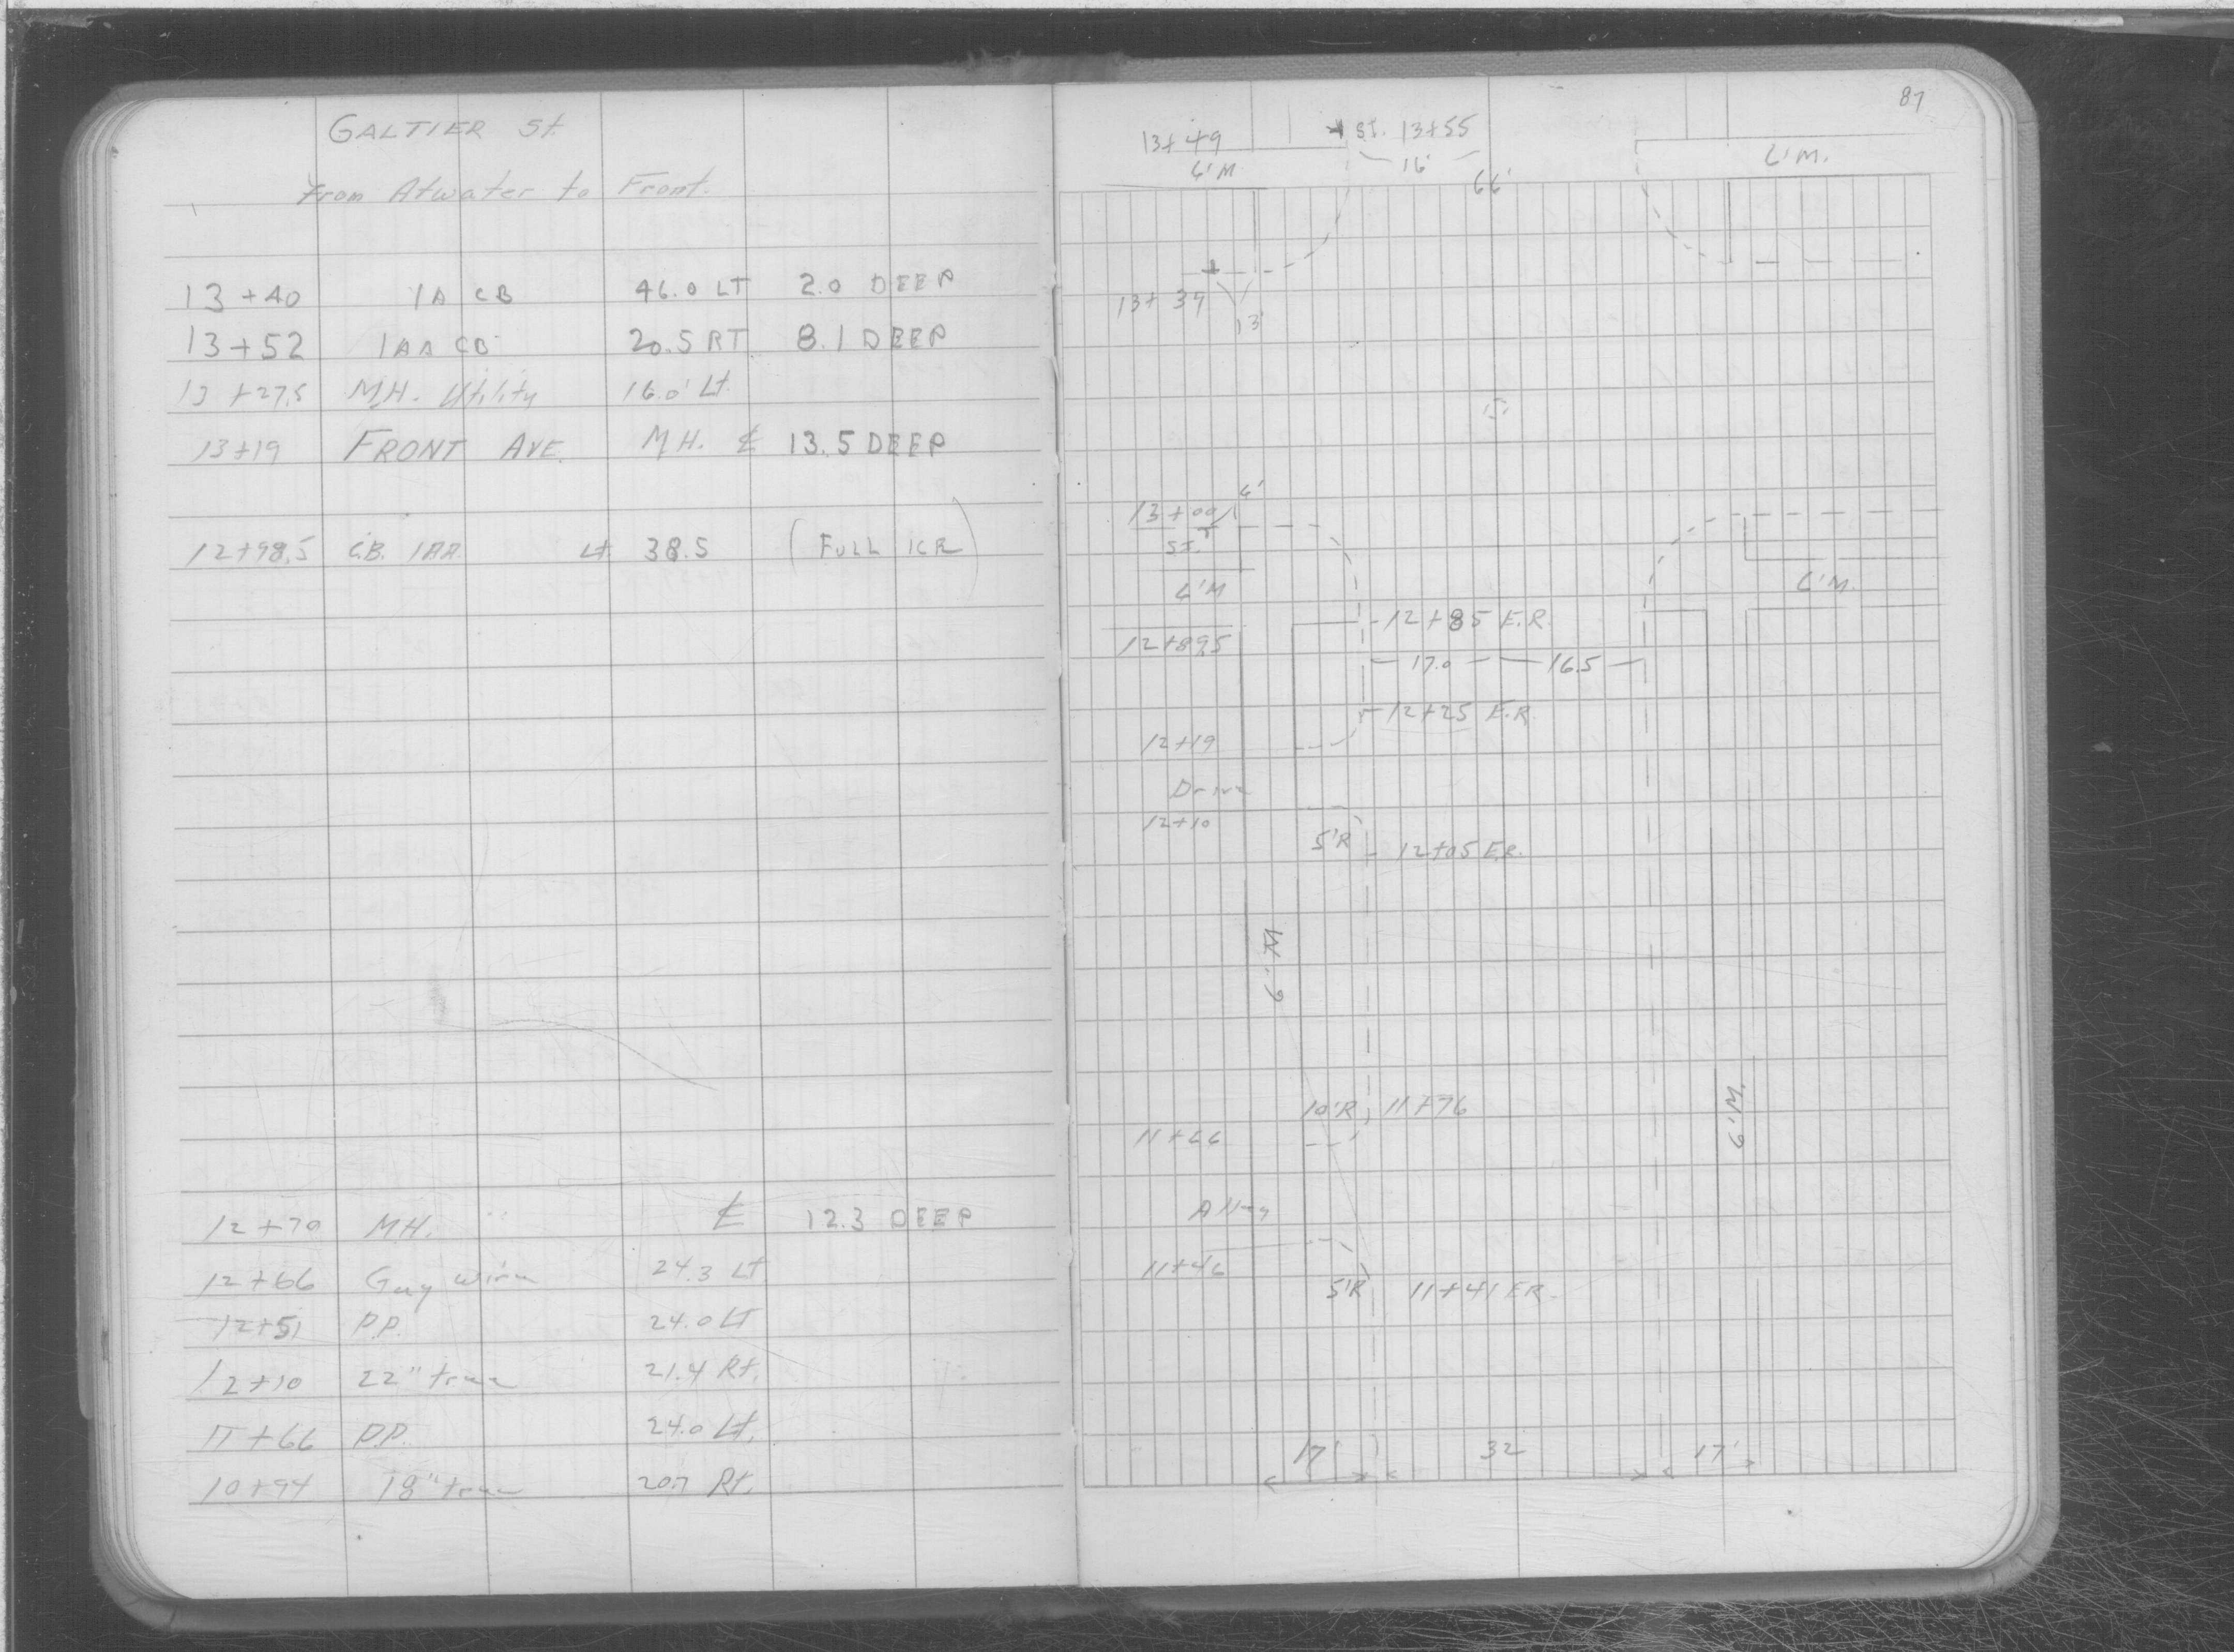 GALTIER St.
From Atwater to Front.
13+40 1A CB 46.0 LT 2.0 DEEP
13+52 1AA CB 20.5 RT 8.1 DEEP
13+27.5 M.H. Utility 16.0' Lt.
13+19 FRONT AVE. M.H. ℄ 13.5 DEEP
12+98.5 C.B. 1AA Lt 38.5 (FULL ICR)
12+70 M.H. ℄ 12.3 DEEP
12+66 Guy wire 24.3 Lt
12+51 P.P. 24.0 Lt
12+10 22" tree 21.4 Rt.
11+66 P.P. 24.0 Lt.
10+94 18" tree 20.7 Rt.
87
13+49 ST. 13+55
6'M 16' 6'M.
66'
13+39
13'
6'
13+00
ST.
6'M 6'M.
12+85 E.R.
12+89.5
17.0 16.5
12+25 E.R.
12+19
Drive
12+10
5'R 12+05 E.R.
6'M
10'R 11+76
6'M.
11+66
Alley
11+46
5'R 11+41 E.R.
17' 32 17'